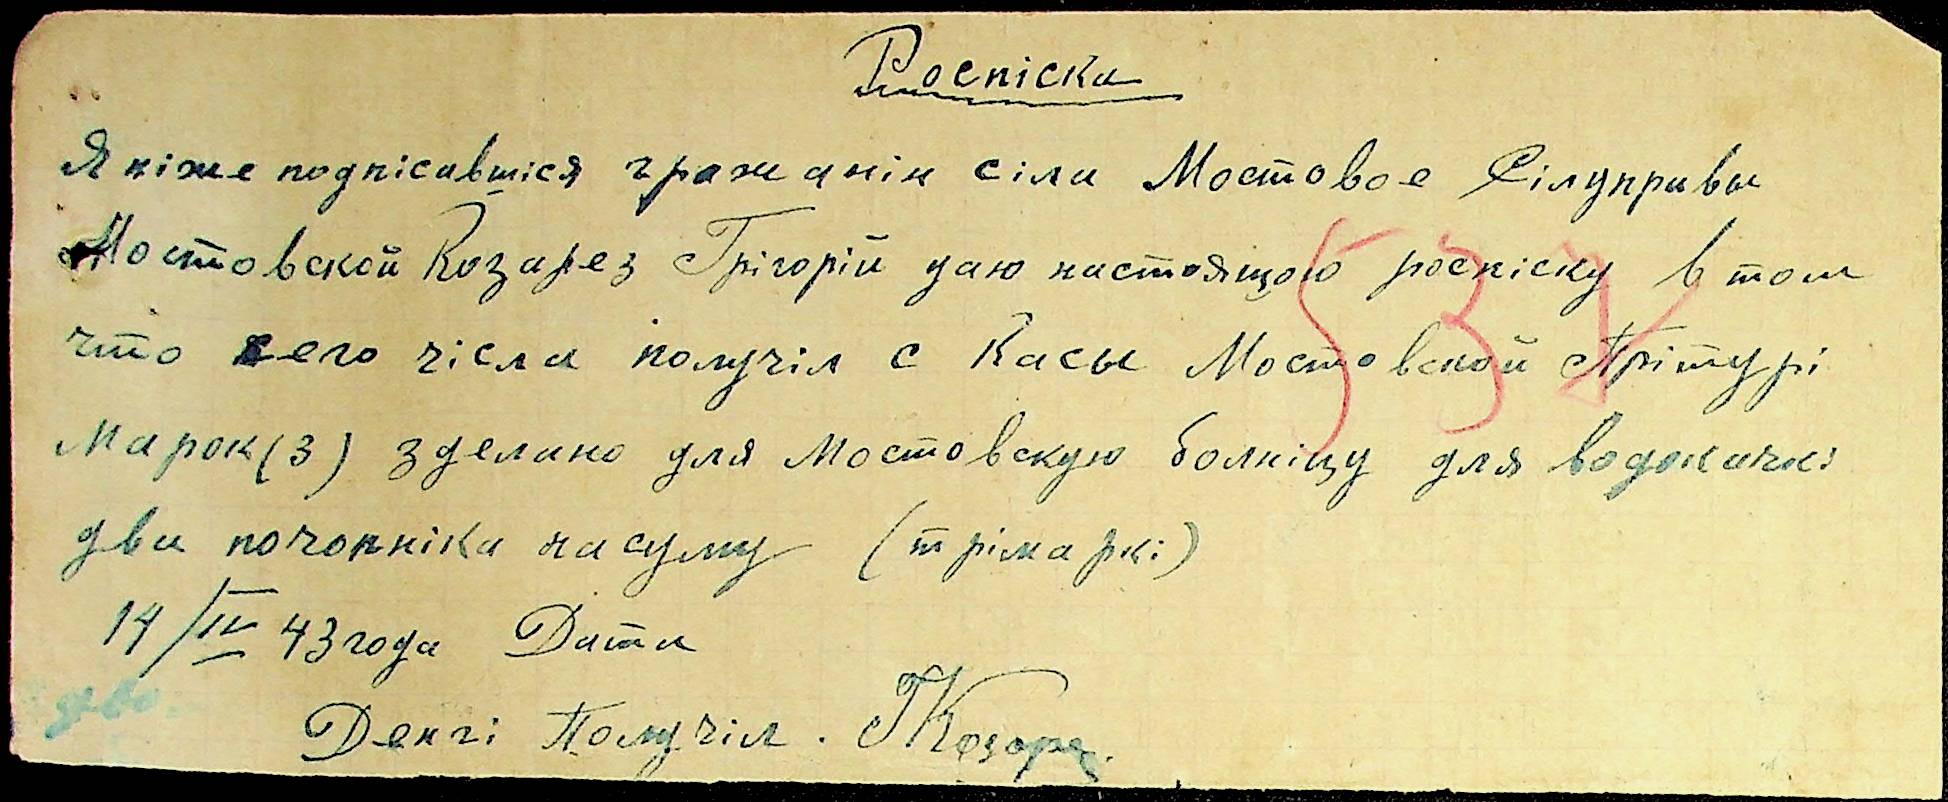 Роспіска
Я ніже подпісавшіся гражанін сіла Мостовое Сілуправы
Мостовской Козарез Грігорій даю настоящою роспіску в том
что сего чісла получіл с Касы Мостовской Прітурі
марок (3) зделано для Мостовскую болніцу для водокачкі
два почопніка на суму (трімаркі)
14/IV 43 года Дата
Денгі Получіл. ГКозарез
53